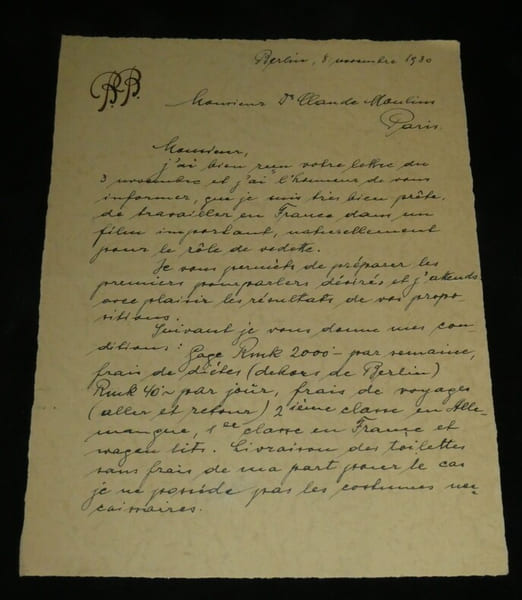 Berlin, 8 novembre 1930
B.B.
Monsieur Dr Claude Moulins
Paris.
Monsieur,
j'ai bien reçu votre lettre du
3 novembre et j'ai l'honneur de vous
informer, que je suis très bien prête,
de travailler en France dans un
film important, naturellement
pour le rôle de vedette.
Je vous permets de préparer les
premiers pourparlers désirés et j'attends
avec plaisir les résultats de vos propo
sitions.
Suivant je vous donne mes con
ditions: Gage Rmk 2000.- par semaine,
frais de diètes (dehors de Berlin)
Rmk 40.- par jour, frais de voyages
(aller et retour) 2ième classe en Alle-
mangue, 1er classe en France et
wagon lits. Livraison des toilettes
sans frais de ma part pour le cas
je ne possède pas les costumes né-
caissaires.